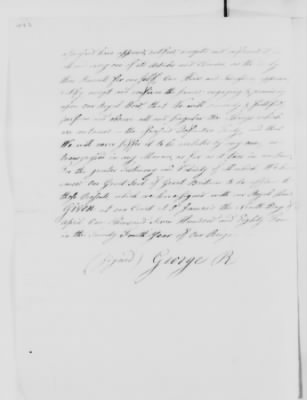 aforesaid have approved, ratified, accepted and confirmed
every one of its Articles and Clauses, as we do by
these Presents for our self, Our Heirs and Successors approve,
ratify, accept and confirm the same; engaging & promising
upon our Royal Word that we will sincerely & faithfully
perform and observe all and singular the things which
are contained in the Definitive Treaty, and that
We will never suffer it to be violated by any one, or
transgressed in any Manner, as far as it lies in our Power.
For the greater Testimony and Validity of
caused our Great Seal of Great Britain to be affixed to
these Presents, which we have signed with our Royal Hand
GIVEN at our Court at St James's the Ninth Day of
April One Thousand Seven Hundred and Eighty Four
in the Twenty Fourth Year of Our Reign.
(Signed) George R